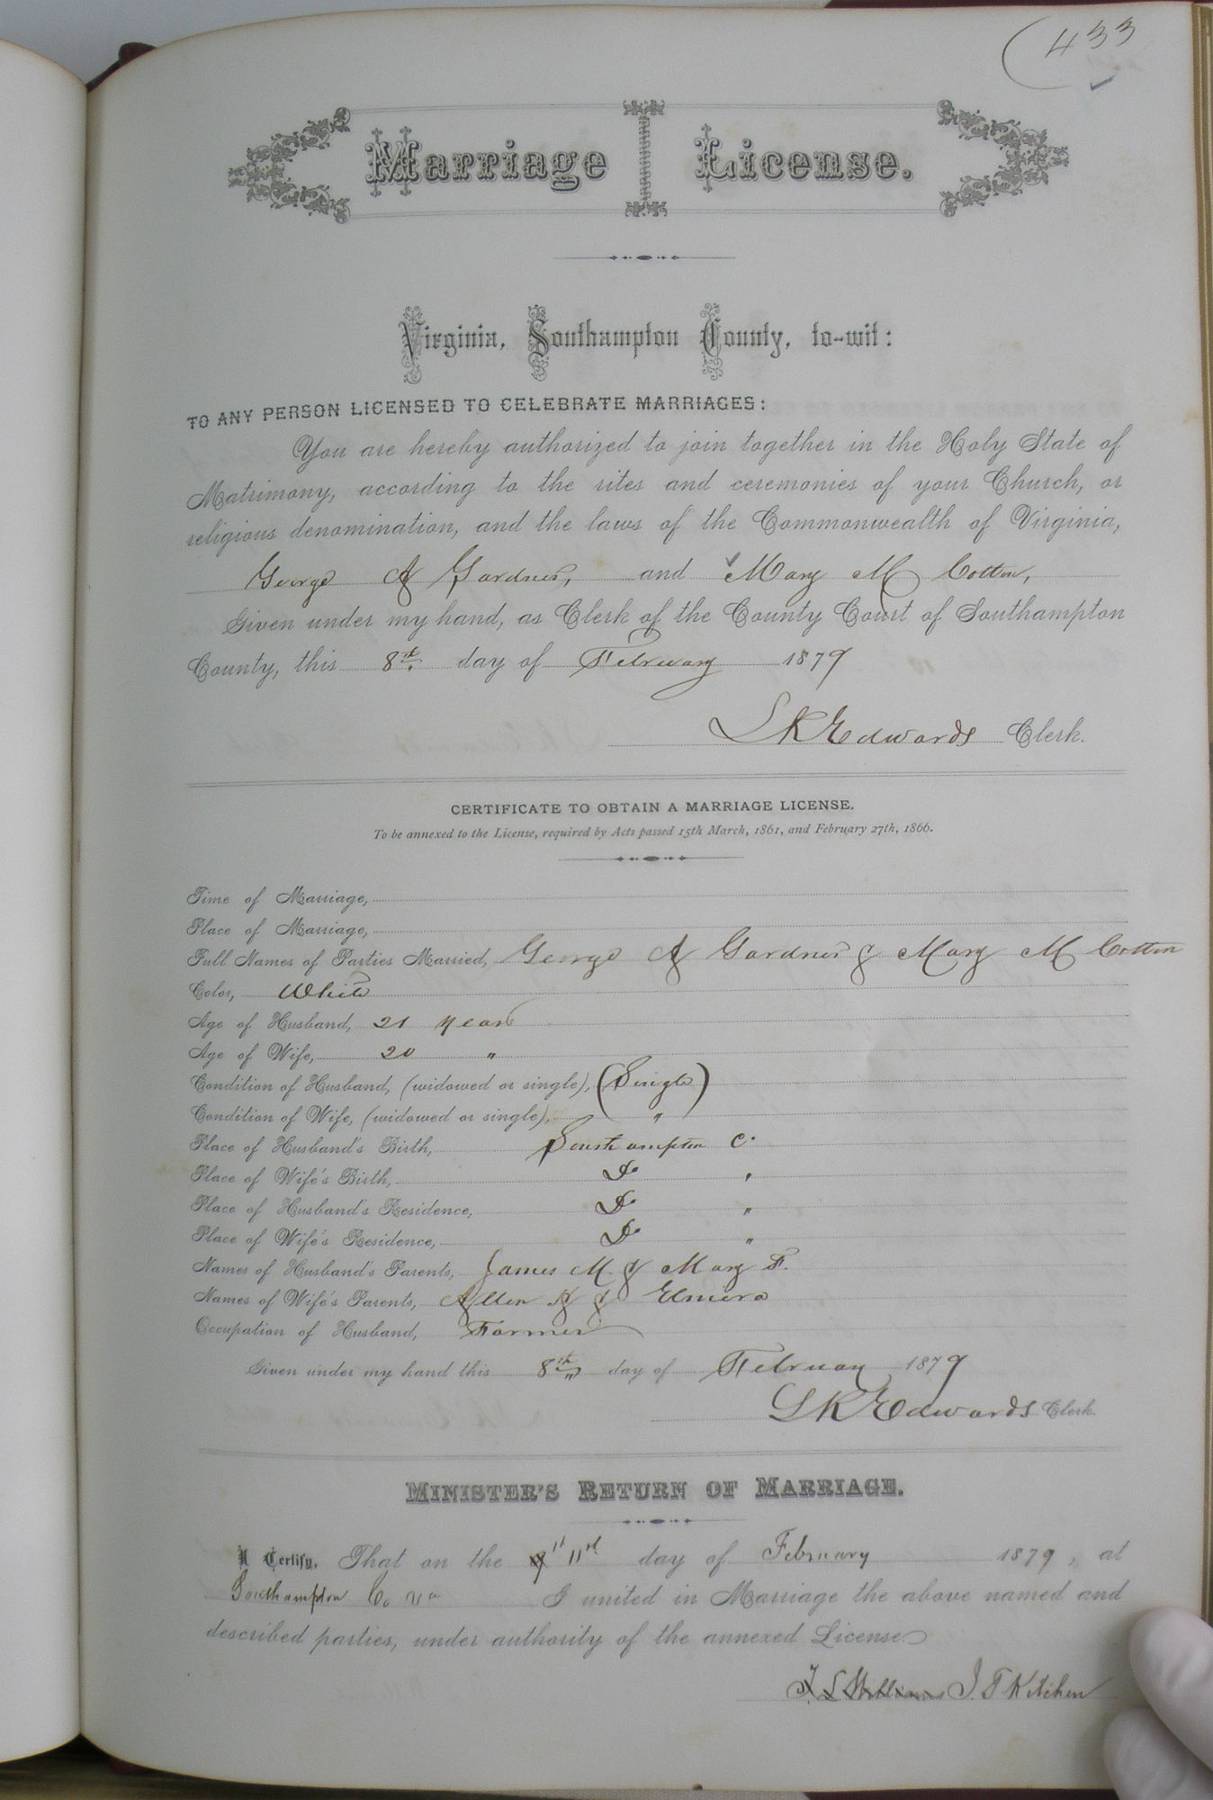 433
Marriage License.
Virginia, Southampton County, to-wit:
TO ANY PERSON LICENSED TO CELEBRATE MARRIAGES:
You are hereby authorized to join together in the Holy State of
Matrimony, according to the rites and ceremonies of your Church, or
religious denomination, and the laws of the Commonwealth of Virginia,
George A Gardner, and Mary M Cotton,
Given under my hand, as Clerk of the County Court of Southampton
County, this 8th day of February 1879
L K Edwards Clerk.
CERTIFICATE TO OBTAIN A MARRIAGE LICENSE.
To be annexed to the License, required by Acts passed 15th March, 1861, and February 27th, 1866.
Time of Marriage,
Place of Marriage,
Full Names of Parties Married, George A Gardner & Mary M Cotton
Color, White
Age of Husband, 21 years
Age of Wife, 20 "
Condition of Husband, (widowed or single), (Single)
Condition of Wife, (widowed or single), "
Place of Husband's Birth, Southampton C.
Place of Wife's Birth, Do "
Place of Husband's Residence, Do "
Place of Wife's Residence, Do "
Names of Husband's Parents, James M. & Mary F.
Names of Wife's Parents, Allen A & Elmira
Occupation of Husband, Farmer
Given under my hand this 8th day of February 1879
L K Edwards Clerk.
MINISTER'S RETURN OF MARRIAGE.
I Certify, That on the 11 day of February 1879, at
Southampton Co Va I united in Marriage the above named and
described parties, under authority of the annexed License
J. T Kitchen